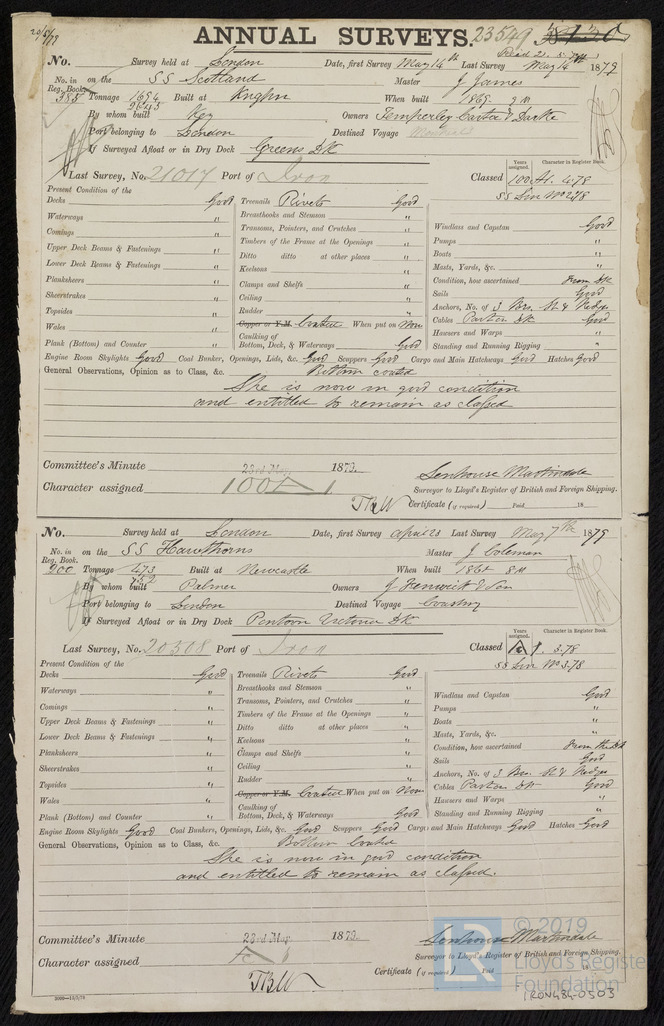 20/5/79
ANNUAL SURVEYS. 23549
No. Survey held at London Date, first Survey May 14th Last Survey May 14th 1879
No. in Reg. Book. on the SS Scotland Master J James
385 Tonnage 1694 2645 Built at When built 1865 9m
By whom built Key Owners Temperley Carter & Darke
Port belonging to London Destined Voyage Montreal
If Surveyed Afloat or in Dry Dock Greens Dk
Years assigned. Character in Register Book.
Last Survey, No. 21017 Port of Iron Classed 100A1. 4.78
Present Condition of the SS Lon No 2.78
Decks Good Treenails Rivets Good
Waterways " Breasthooks and Stemson " Windlass and Capstan Good
Comings " Transoms, Pointers, and Crutches " Pumps "
Upper Deck Beams & Fastenings " Timbers of the Frame at the Openings " Boats "
Lower Deck Beams & Fastenings " Ditto ditto at other places " Masts, Yards, &c. "
Planksheers " Keelsons " Condition, how ascertained From Dk
Sheerstrakes " Clamps and Shelfs " Sails Good
Topsides " Ceiling " Anchors, No. of 3 Brs. St & Kedge
Wales " Rudder " Cables Part on Dk Good
Plank (Bottom) and Counter " Copper or Y.M. Coated When put on Now Hawsers and Warps "
Caulking of Bottom, Deck, & Waterways Good Standing and Running Rigging "
Engine Room Skylights Good Coal Bunker, Openings, Lids, &c. Good Scuppers Good Cargo and Main Hatchways Good Hatches Good
General Observations, Opinion as to Class, &c. Bottom coated
She is now in good condition
and entitled to remain as classed
Committee's Minute 23rd May 1879. Senhouse Martindale
Character assigned 100A1 Surveyor to Lloyd's Register of British and Foreign Shipping.
TBW Certificate (if required) Paid 18
No. Survey held at London Date, first Survey April 23 Last Survey May 7th 1879
No. in Reg. Book. on the SS Hawthorns Master J Coleman
200 Tonnage 473 Built at Newcastle When built 1865 8m
By whom built Palmer Owners J Fenwick & Son
Port belonging to London Destined Voyage Coasting
If Surveyed Afloat or in Dry Dock Pontoon Victoria Dk
Years assigned. Character in Register Book.
Last Survey, No. 20508 Port of Iron Classed A 1. 3.78
Present Condition of the SS Lon No 3.78
Decks Good Treenails Rivets Good
Waterways " Breasthooks and Stemson " Windlass and Capstan Good
Comings " Transoms, Pointers, and Crutches " Pumps "
Upper Deck Beams & Fastenings " Timbers of the Frame at the Openings " Boats "
Lower Deck Beams & Fastenings " Ditto ditto at other places " Masts, Yards, &c. "
Planksheers " Keelsons " Condition, how ascertained From the Dk
Sheerstrakes " Clamps and Shelfs " Sails Good
Topsides " Ceiling " Anchors, No. of 3 Brs. St & Kedge
Wales " Rudder " Cables Part on Dk Good
Plank (Bottom) and Counter " Copper or Y.M. Coated When put on Now Hawsers and Warps "
Caulking of Bottom, Deck, & Waterways Good Standing and Running Rigging "
Engine Room Skylights Good Coal Bunkers, Openings, Lids, &c. Good Scuppers Good Cargo and Main Hatchways Good Hatches Good
General Observations, Opinion as to Class, &c. Bottom Coated
She is now in good condition
and entitled to remain as classed.
Committee's Minute 23rd May 1879. Senhouse Martindale
Character assigned A 1 Surveyor to Lloyd's Register of British and Foreign Shipping.
TBW Certificate (if required) Paid 18
LR © 2019 Lloyd's Register Foundation
IRON484-0503